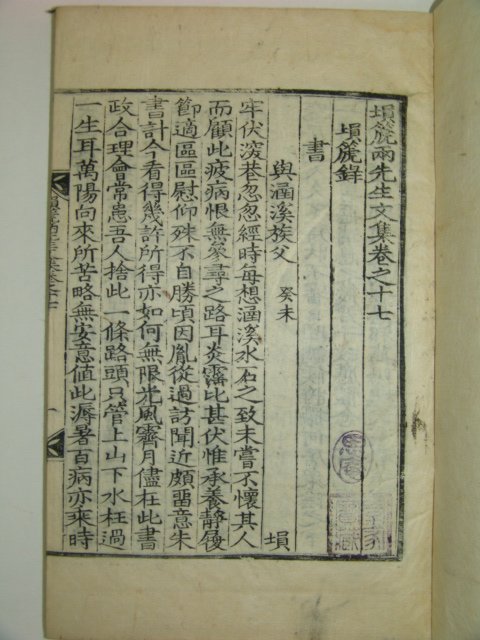 塤篪兩先生文集卷之十七
塤篪錄
書
與涵溪族父 癸未 塤
牢伏深巷忽忽經時每想涵溪水石之致未嘗不懷其人
而顧此疲病恨無尋之路耳炎霪比甚伏惟承養靜履
節適區區慰仰殊不自勝頃因胤從過訪聞近頗留意朱
書計今看得幾許所得亦如何無限光風霽月儘在此書
政合理會常患吾人捨此一條路頭只管上山下水枉過
一生耳萬陽向來所苦略無安意値此溽暑百病亦乘時